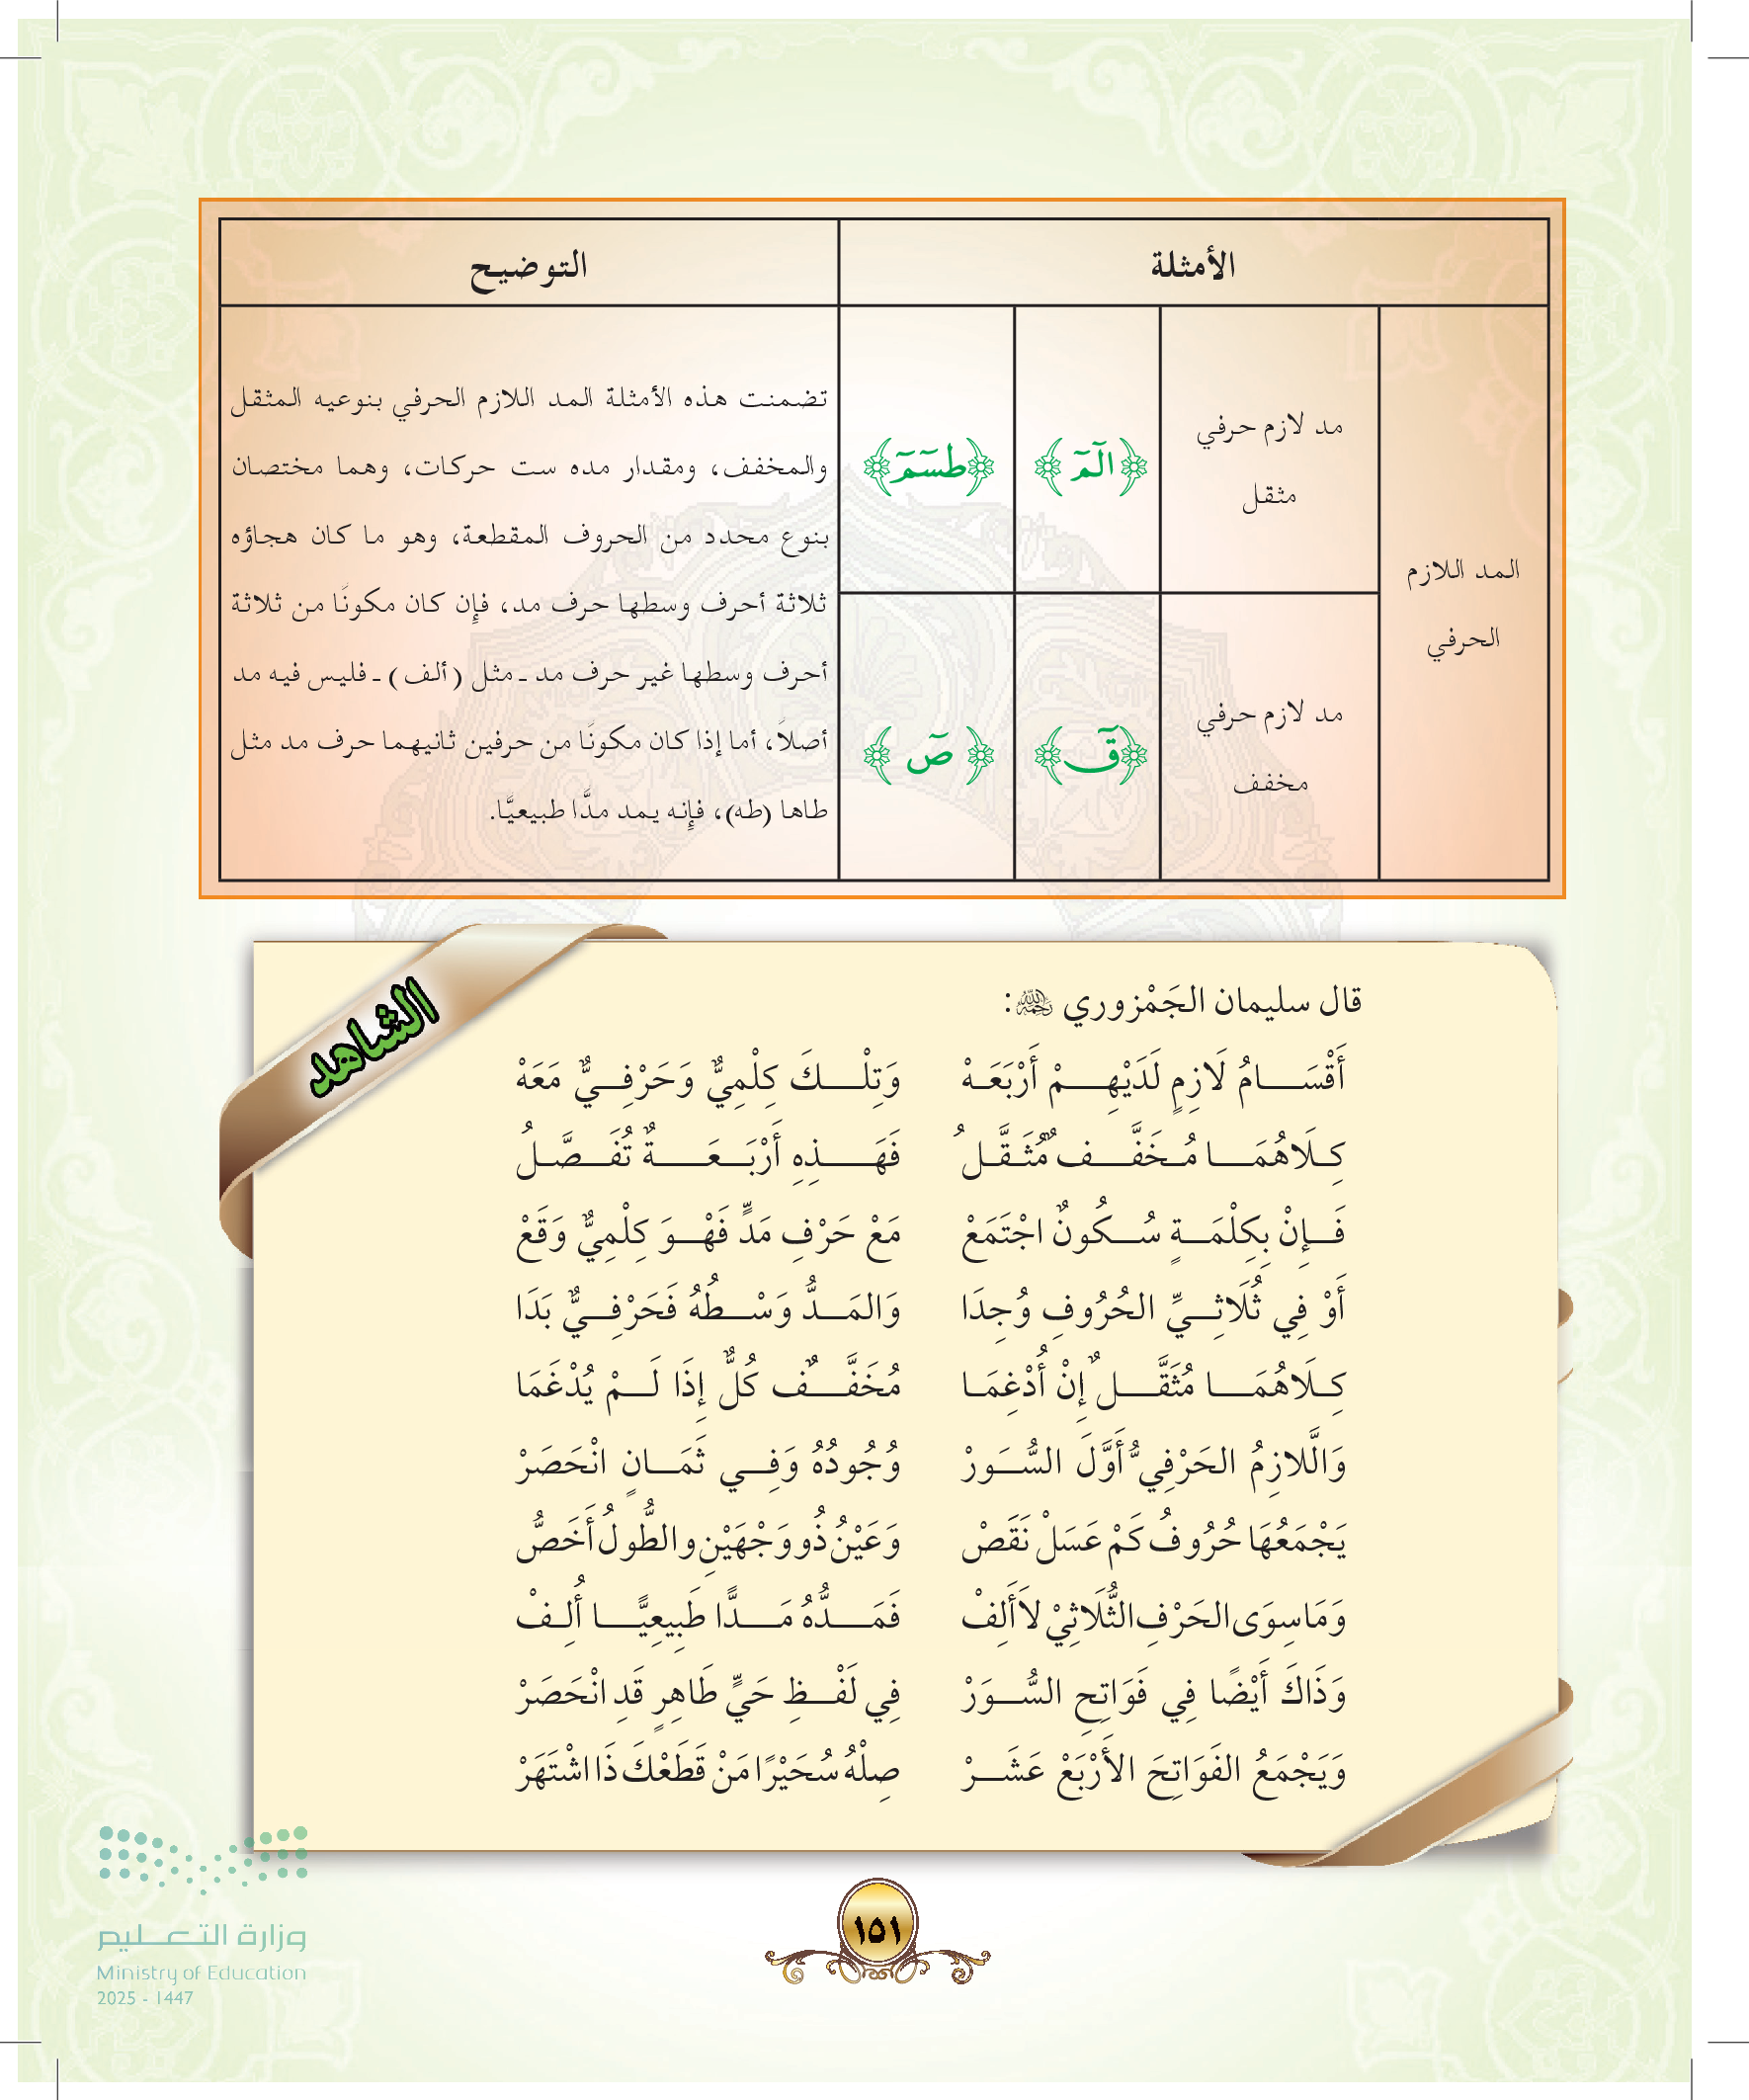 الأمثلة
التوضيح
المد اللازم
الحرفي
مد لازم حرفي
مثقل
﴿الٓمٓ﴾
﴿طسٓمٓ﴾
مد لازم حرفي
مخفف
﴿قٓ﴾
﴿صٓ﴾
تضمنت هذه الأمثلة المد اللازم الحرفي بنوعيه المثقل
والمخفف، ومقدار مده ست حركات، وهما مختصان
بنوع محدد من الحروف المقطعة، وهو ما كان هجاؤه
ثلاثة أحرف وسطها حرف مد، فإن كان مكونًا من ثلاثة
أحرف وسطها غير حرف مد ـ مثل (ألف) ـ فليس فيه مد
أصلاً، أما إذا كان مكونًا من حرفين ثانيهما حرف مد مثل
طاها (طه)، فإنه يمد مدًّا طبيعيًّا.
الشاهد
قال سليمان الجَمْزوري رحمه الله:
أَقْسَامُ لَازِمٍ لَدَيْهِمْ أَرْبَعَهْ وَتِلْكَ كِلْمِيٌّ وَحَرْفِيٌّ مَعَهْ
كِلَاهُمَا مُخَفَّفٌ مُثَقَّلُ فَهَذِهِ أَرْبَعَةٌ تُفَصَّلُ
فَإِنْ بِكِلْمَةٍ سُكُونٌ اجْتَمَعْ مَعْ حَرْفِ مَدٍّ فَهْوَ كِلْمِيٌّ وَقَعْ
أَوْ فِي ثُلَاثِيِّ الحُرُوفِ وُجِدَا وَالمَدُّ وَسْطُهُ فَحَرْفِيٌّ بَدَا
كِلَاهُمَا مُثَقَّلٌ إِنْ أُدْغِمَا مُخَفَّفٌ كُلٌّ إِذَا لَمْ يُدْغَمَا
وَالَّلازِمُ الحَرْفِيُّ أَوَّلَ السُّوَرْ وُجُودُهُ وَفِي ثَمَانٍ انْحَصَرْ
يَجْمَعُهَا حُرُوفُ كَمْ عَسَلْ نَقَصْ وَعَيْنُ ذُو وَجْهَيْنِ والطُّولُ أَخَصُّ
وَمَا سِوَى الحَرْفِ الثُّلَاثِيْ لاَ أَلِفْ فَمَدُّهُ مَدًّا طَبِيعِيًّا أُلِفْ
وَذَاكَ أَيْضًا فِي فَوَاتِحِ السُّوَرْ فِي لَفْظِ حَيٍّ طَاهِرٍ قَدِ انْحَصَرْ
وَيَجْمَعُ الفَوَاتِحَ الأَرْبَعْ عَشَرْ صِلْهُ سُحَيْرًا مَنْ قَطَعْكَ ذَا اشْتَهَرْ
١٥١
وزارة التعليم
Ministry of Education
2025 - 1447